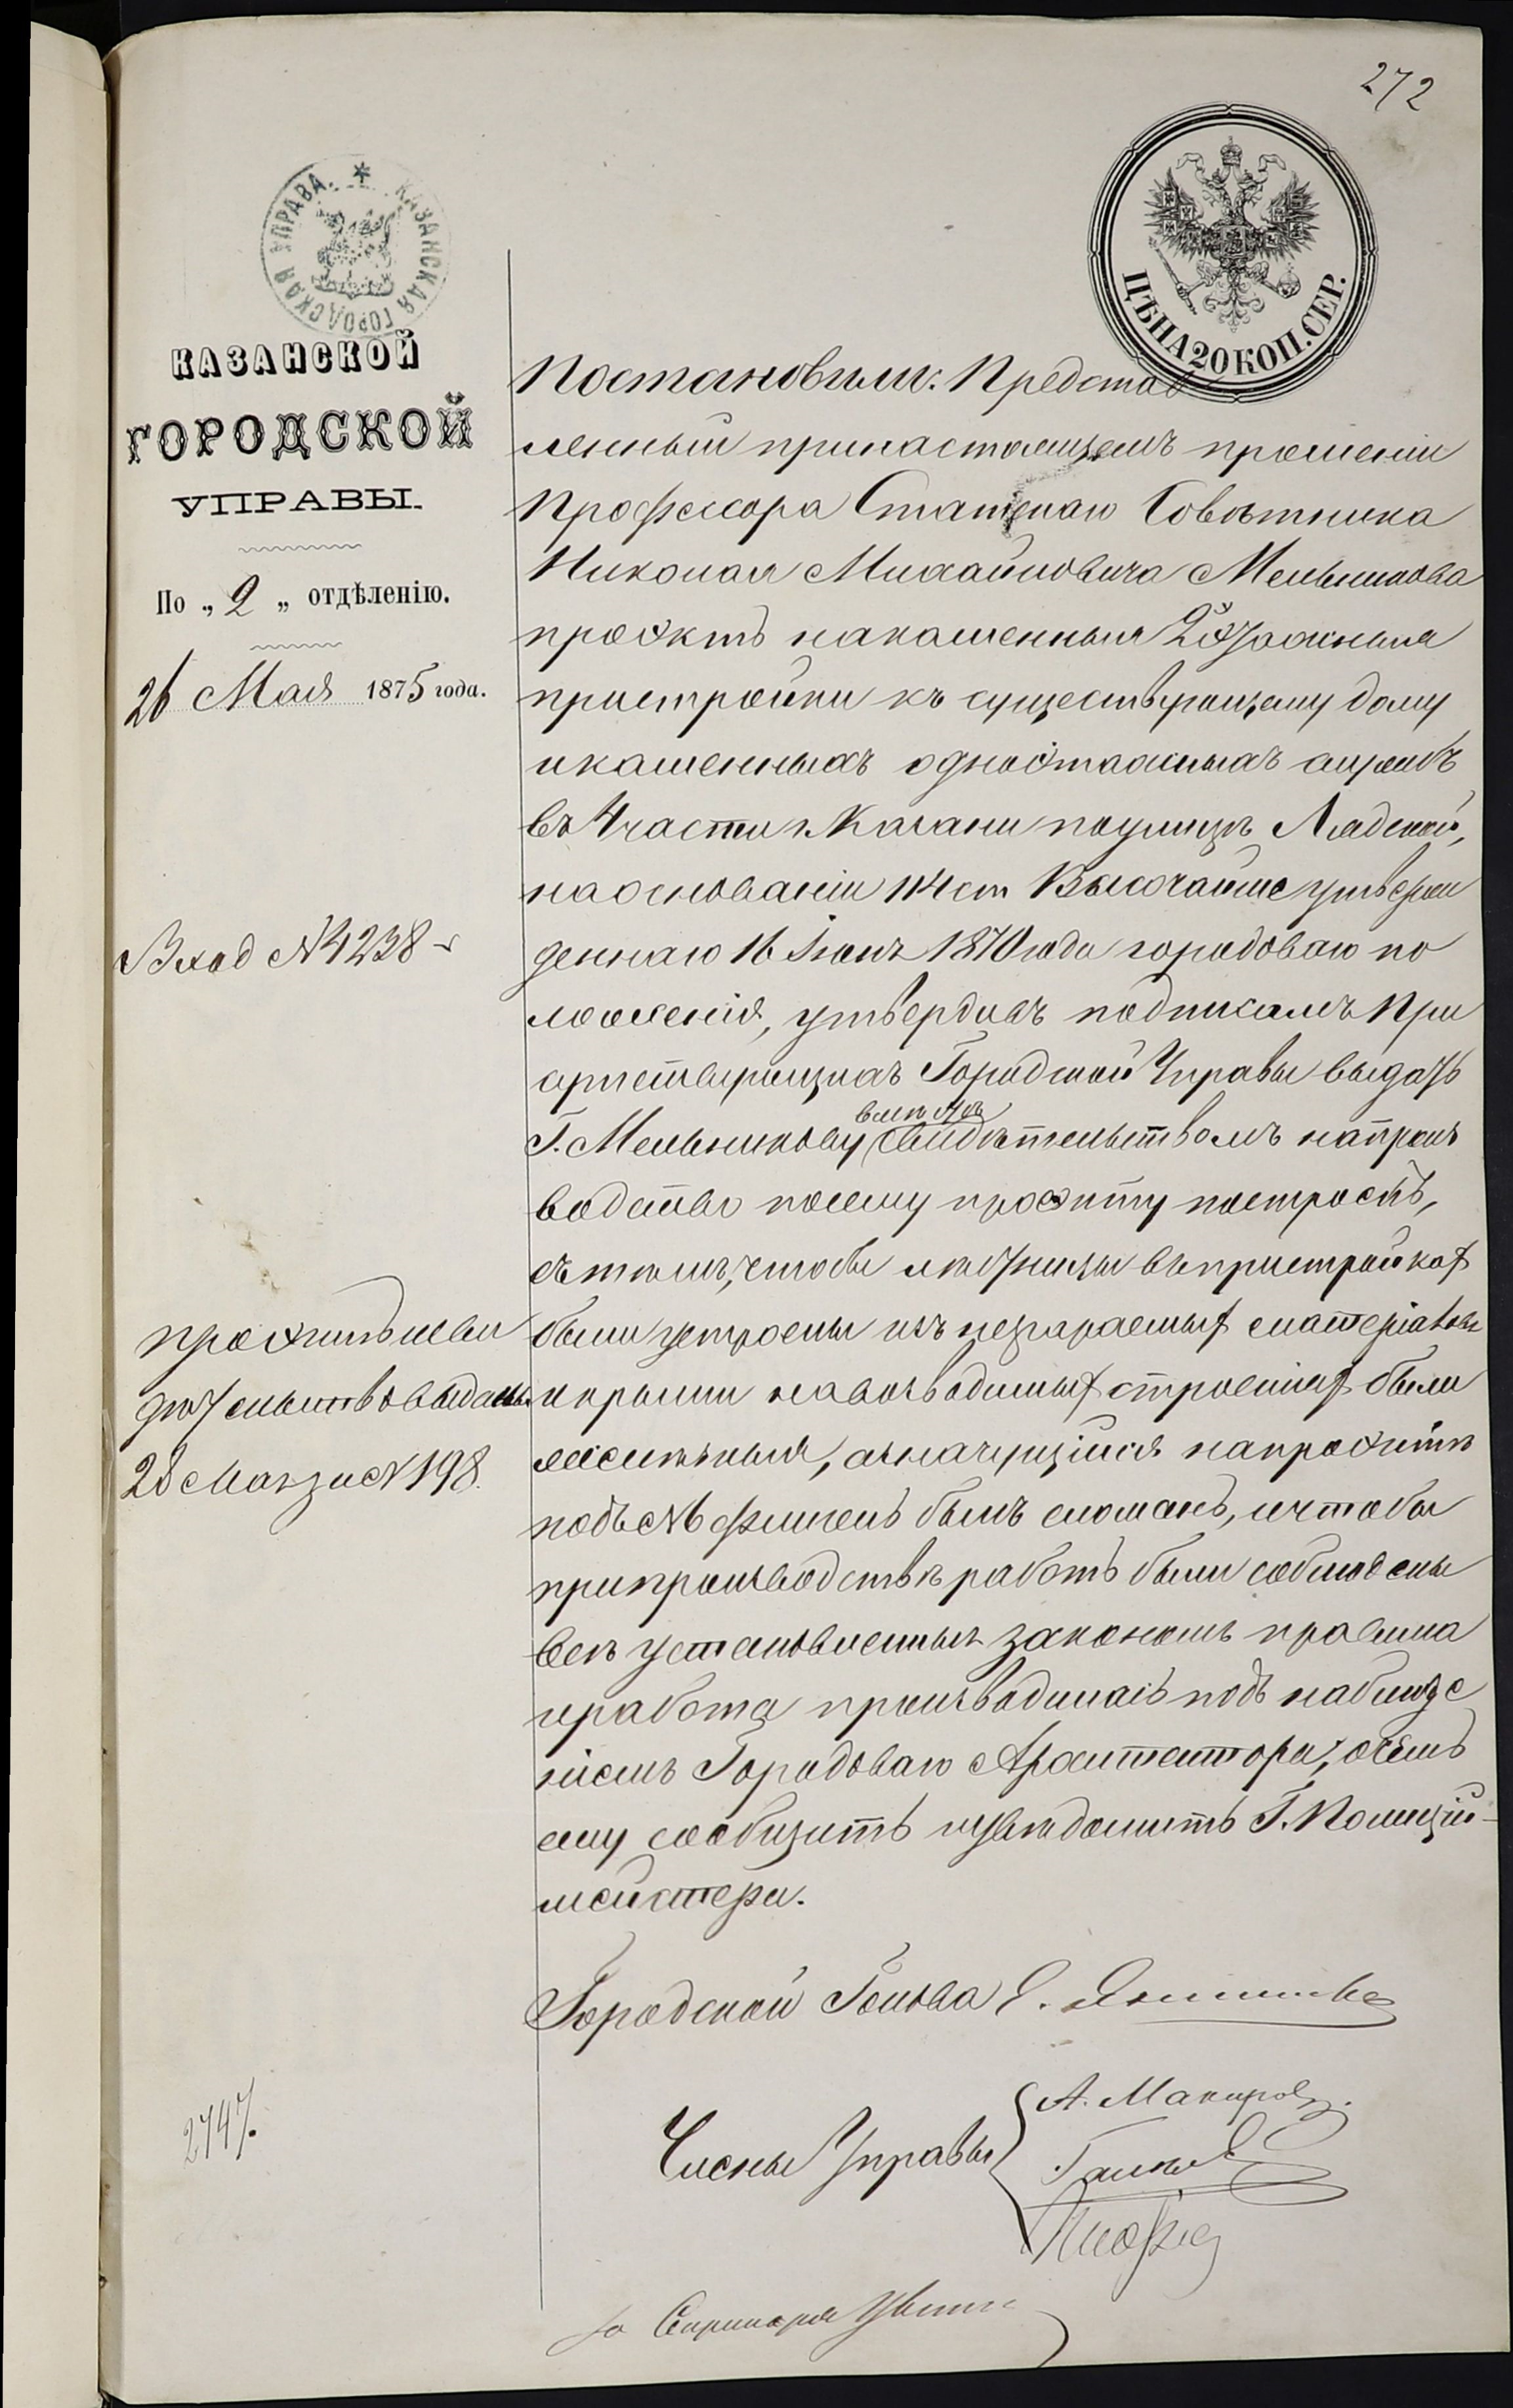 272
КАЗАНСКАЯ ГОРОДСКАЯ УПРАВА
ЦѢНА 20 КОП. СЕР.
КАЗАНСКОЙ
ГОРОДСКОЙ
УПРАВЫ.
По „ 2 „ отдѣленію.
26 Мая 1875 года.
Вход №4238
проэктъ
выданы
28 Мая за №198.
2747.
Постановили: Представ
ленный принастоящемъ прошеніи
Профессора Статскаго Совѣтника
Николая Михайловича Мельникова
проэктъ накаменныя 2хэтажныя
пристройки къ существующему дому
икаменныхъ одноэтажныхъ службъ
въ 4 части г. Казани поулицѣ Лядской,
наоснованіи 114 ст Высочайше утверж
деннаго 16 Іюня 1870 года городоваго по
ложенія, утвердивъ подписомъ При
сутствующихъ Городской Управы выдать
Г. Мельникову вмѣстѣ свидѣтельствомъ напроиз
водство посему проэкту построекъ,
сътѣмъ, чтобы лѣстницы въпристройкахъ
были устроены изъ несгараемыхъ матеріаловъ
икрыши навозводимыхъ строеніяхъ были
желѣзныя, азначущійся напроэктѣ
подъ №6 флигель былъ сломанъ, ичтобы
припроизводствѣ работъ были соблюдены
всѣ установленныя закономъ правила
иработа производилась подъ наблюде
ніемъ Городоваго Архитектора, очемъ
ему сообщить иувѣдомить Г. Полицій-
мейстера.
Городской Голова Е. Янишевс
Члены Управы
А. Макаровъ.
За Секретаря